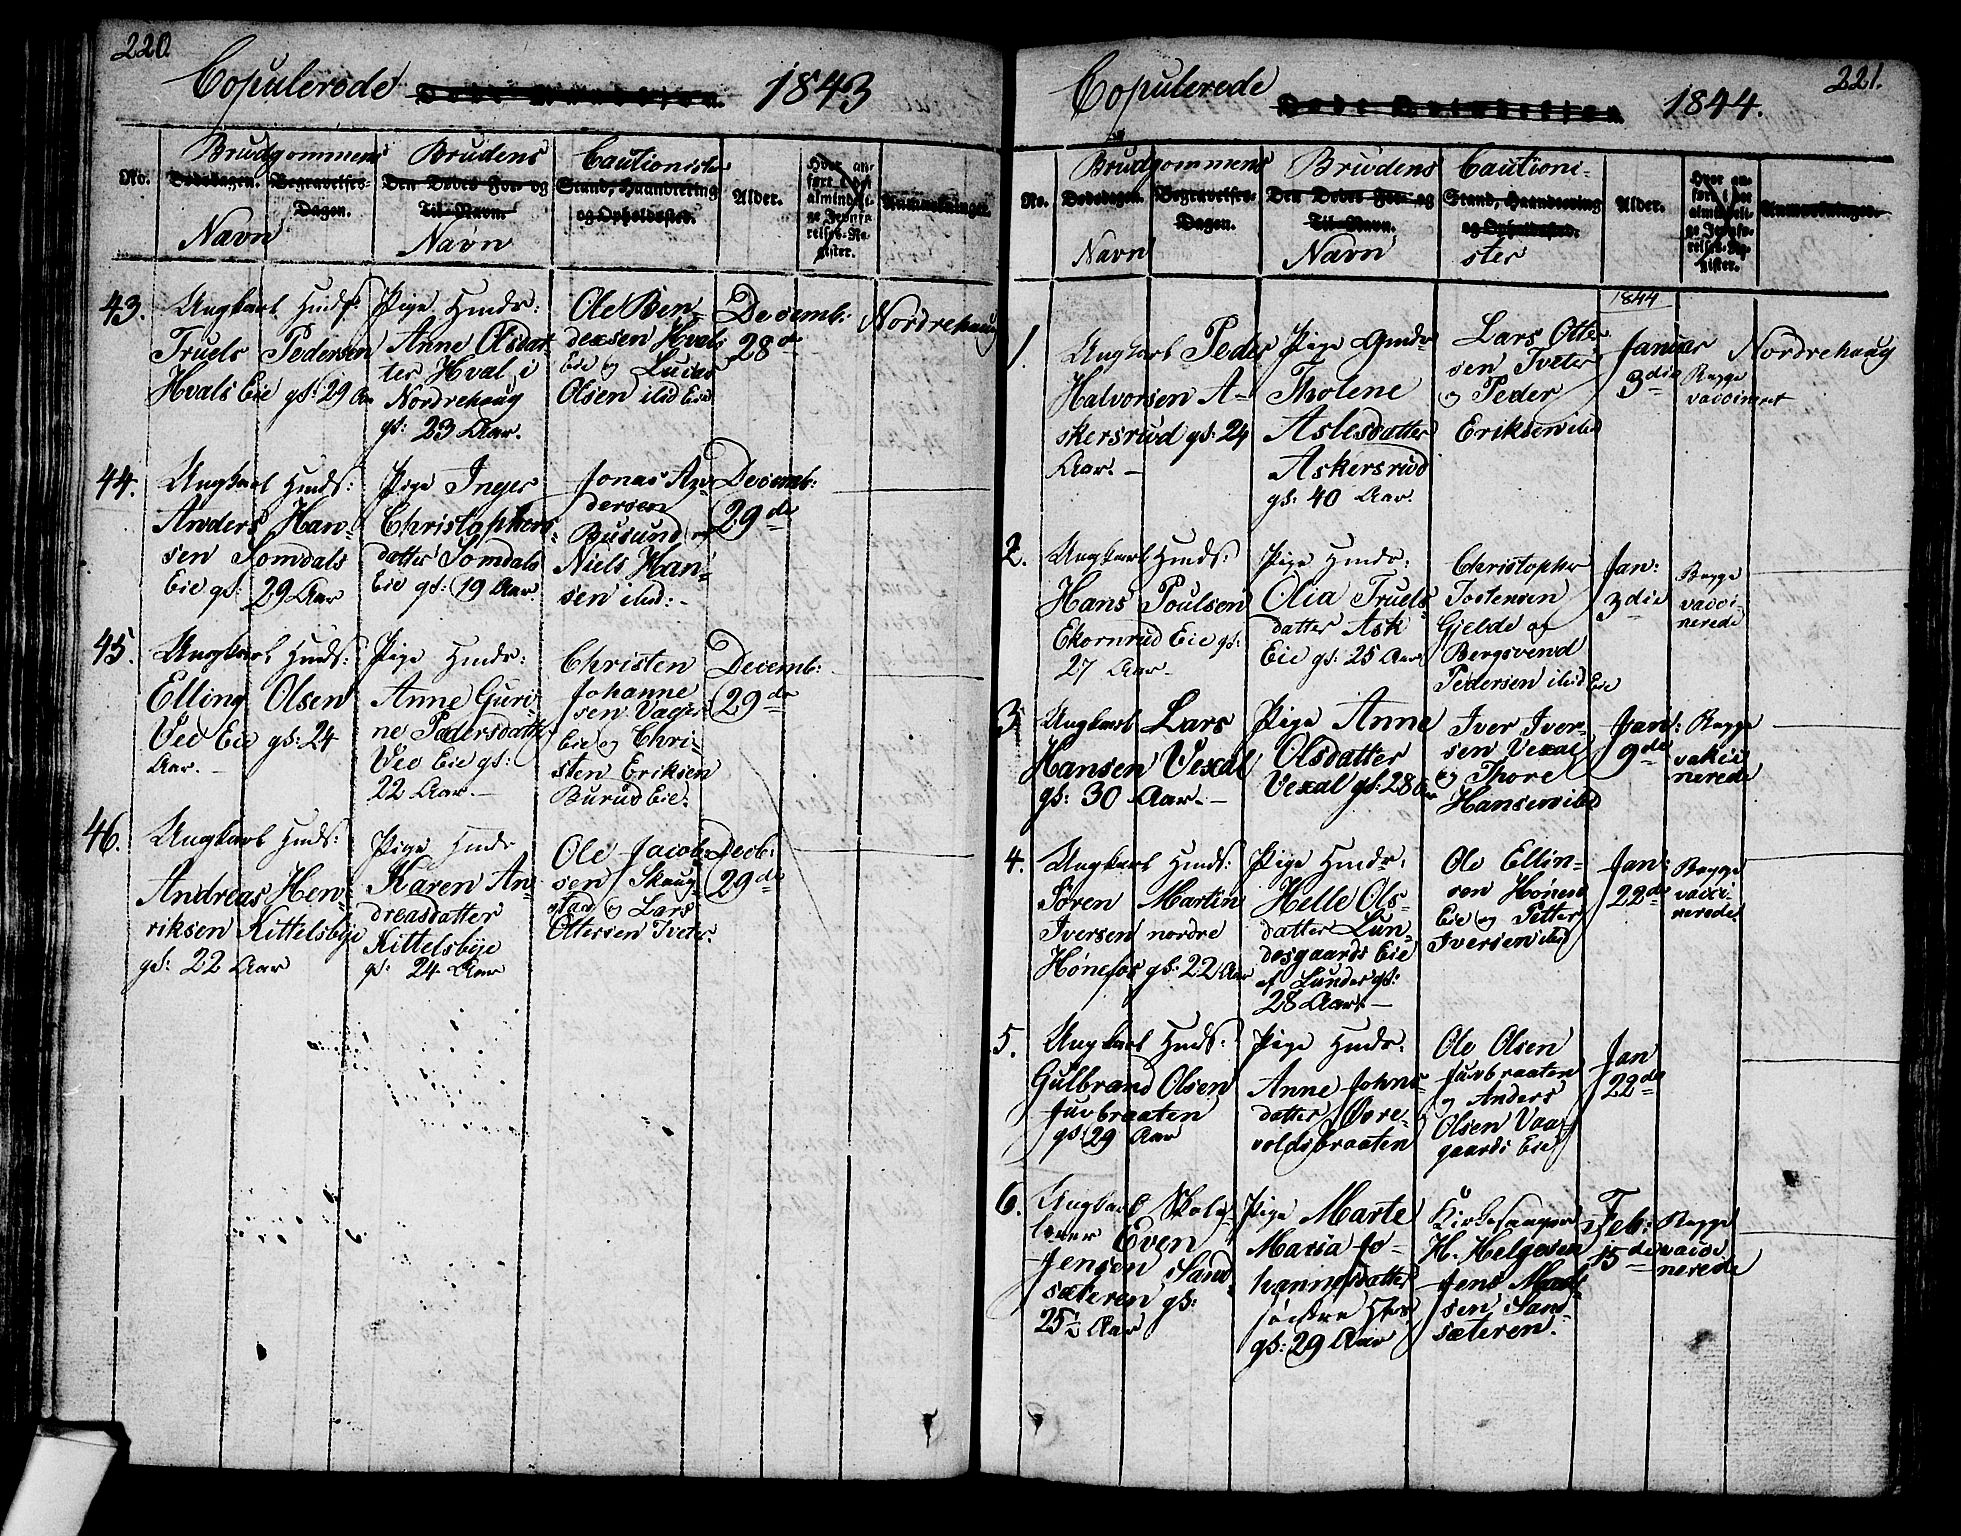 220.
Copulerede 1843
No.
Brudgommens
Dødsdagen. Begravelses-
Dagen.
Navn
Brudens
Den Dødes For- og
Til-Navn.
Navn
Cautionister
Stand, Haandtering
og Opholdssted.
Alder.
Hvor an-
ført i det
almindeli-
ge Jevnfø-
relses-Re-
gister.
Anmærkninger.
43.
Ungkarl Huds:
Truels Pedersen
Hvals Eie gl: 29 Aar
Pige Huds:
Anne Olsdat-
ter Hval i
Nordrehaug
gl: 23 Aar.
Ole Ben-
dexsen Hvals
Eie og Lucas
Olsen ibid Eie
Decemb:
28de
Nordrehaug
44.
Ungkarl Huds:
Anders Han-
sen Somdals
Eie gl: 29 Aar
Pige Inger
Christophers-
datter Somdals
Eie gl: 19 Aar.
Jonas An-
dersen
Busund og
Niels Han-
sen ibid: -
Decemb:
29de
45.
Ungkarl Huds:
Elling Olsen
Veo Eie gl: 24
Aar. -
Pige Huds:
Anne Guri-
ne Pedersdatter
Veo Eie gl:
22 Aar. -
Christen
Johanne
sen Vager
Eie og Chri-
sten Eriksen
Burud Eie.
Decemb:
29de
46.
Ungkarl Huds:
Andreas Hen-
riksen Kittelsbye
gl: 22 Aar
Pige Huds
Karen An-
dreasdatter
Kittelsbye
gl: 24 Aar
Ole Jacob-
sen Skaug
stad og Lars
Ottersen Tveter.
Decb:
29de
221.
Copulerede 1844.
No.
Brudgommens
Dødsdagen. Begravelses-
Dagen.
Navn
Brudens
Den Dødes For- og
Til-Navn.
Navn
Cautioni-
Stand, Haandtering
og Opholdssted.
ster
Alder.
Hvor an-
ført i det
almindeli-
ge Jevnfø-
relses-Re-
gister.
Anmærkninger.
1844
1.
Ungkarl Peder
Halvorsen A-
skersrud gl: 24
Aar. -
Pige Huds:
Tholene
Aslesdatter
Askersrud
gl: 40 Aar.
Lars Otter
sen Tveter
og Peder
Eriksen ibid
Januar
3die
Begge
vaccineret
Nordrehaug
2.
Ungkarl Huds:
Hans Poulsen
Ekornrud Eie gl:
27 Aar.
Pige Huds:
Olia Truels-
datter Ask
Eie gl: 25 Aar
Christopher
Tostensen
Gjelde og
Bergsvend
Pedersen ibid Eie
Jan:
3die
Begge
vacci-
nerede
3
Ungkarl Lars
Hansen Vexal
gl: 30 Aar. -
Pige Anne
Olsdatter
Vexal gl: 28 Aar
Iver Iver-
sen Vexal
og Thore
Hansen ibid
Jan:
9de
Begge
vakci
nerede
4.
Ungkarl Huds:
Søren Martin
Iversen nordre
Hønefos gl: 22 Aar
Pige Huds:
Helle Ols-
datter Lun-
desgaards Eie
af Lunder gl:
28 Aar. -
Ole Ellin-
sen Hønens
Eie og Petter
Iversen ibid
Jan:
22de
Begge
vacci-
nerede
5.
Ungkarl Huds:
Gulbrand Olsen
Furbraaten
gl: 29 Aar
Pige Huds:
Anne Johns-
datter Øvre-
voldsbraaten
Ole Olsen
Furbraaten
og Anders
Olsen Vaa-
gaards Eie
Jan
22de
6.
Ungkarl Skole-
lærer Even
Jensen Sand-
sæteren gl:
25½ Aar
Pige Marte
Maria Jo-
hannesdatter
gl: 29 Aar
Kirkesanger
H. Helgesen
Jens Mads-
sen Sand-
sæteren.
Feb:
15de
Begge
vacci
nerede